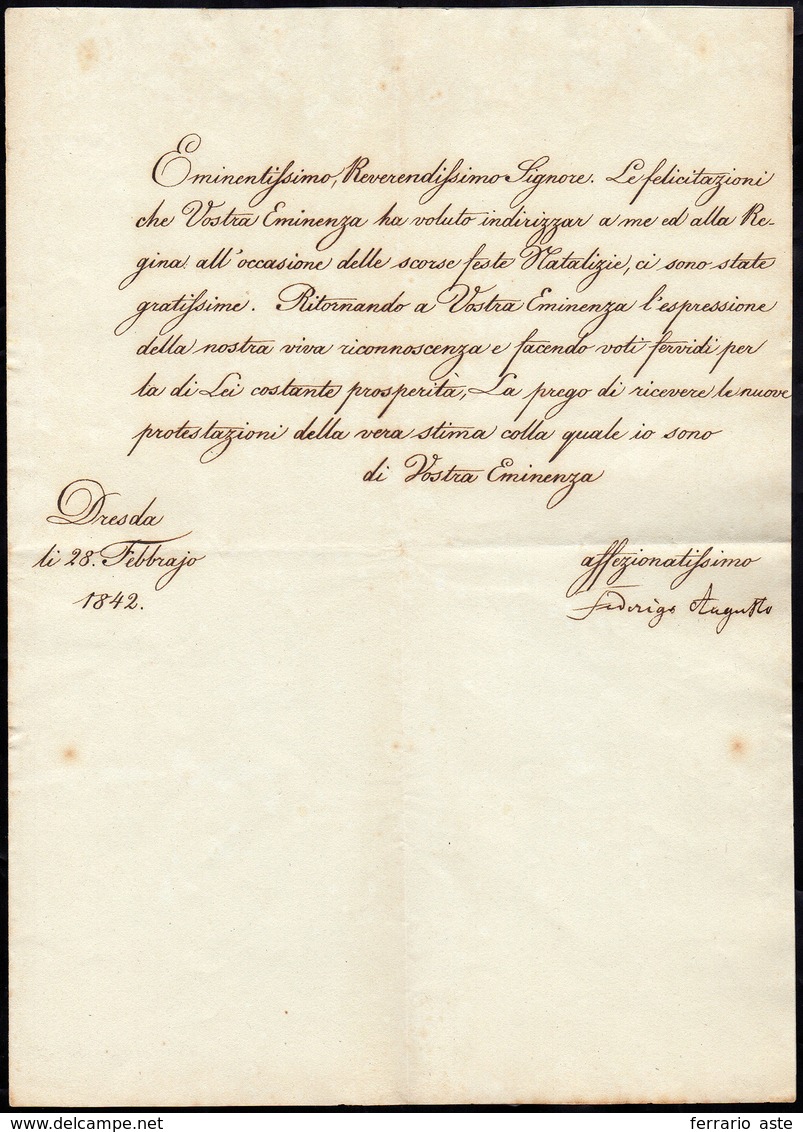 Eminentissimo, Reverendissimo Signore. Le felicitazioni
che Vostra Eminenza ha voluto indirizzar a me ed alla Re-
gina all'occasione delle scorse feste Natalizie, ci sono state
gratissime. Ritornando a Vostra Eminenza l'espressione
della nostra viva riconnoscenza e facendo voti fervidi per
la di Lei costante prosperità, La prego di ricevere le nuove
protestazioni della vera stima colla quale io sono
di Vostra Eminenza
Dresda
li 28. Febbrajo
1842.
affezionatissimo
Federigo Augusto
ferrario aste